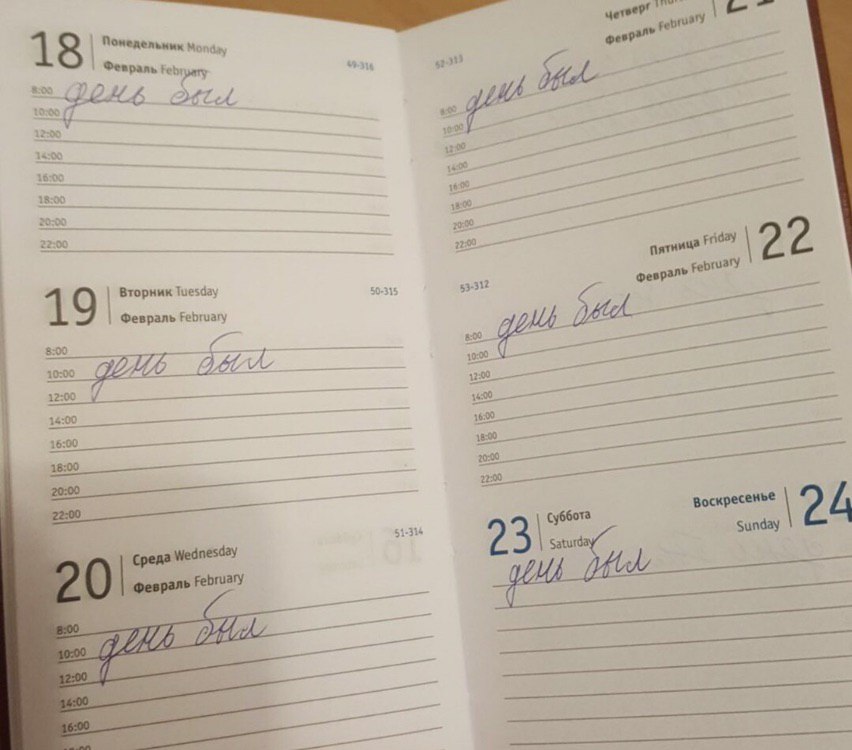 18 Понедельник Monday
Февраль February
49-316
8:00 день был
10:00
12:00
14:00
16:00
18:00
20:00
22:00
19 Вторник Tuesday
Февраль February
50-315
8:00
10:00 день был
12:00
14:00
16:00
18:00
20:00
22:00
20 Среда Wednesday
Февраль February
51-314
8:00
10:00 день был
12:00
14:00
16:00
Четверг
Февраль February
21
52-313
8:00 день был
10:00
12:00
14:00
16:00
18:00
20:00
22:00
Пятница Friday
Февраль February
22
53-312
8:00 день был
10:00
12:00
14:00
16:00
18:00
20:00
22:00
23 Суббота
Saturday
день был
Воскресенье
Sunday
24